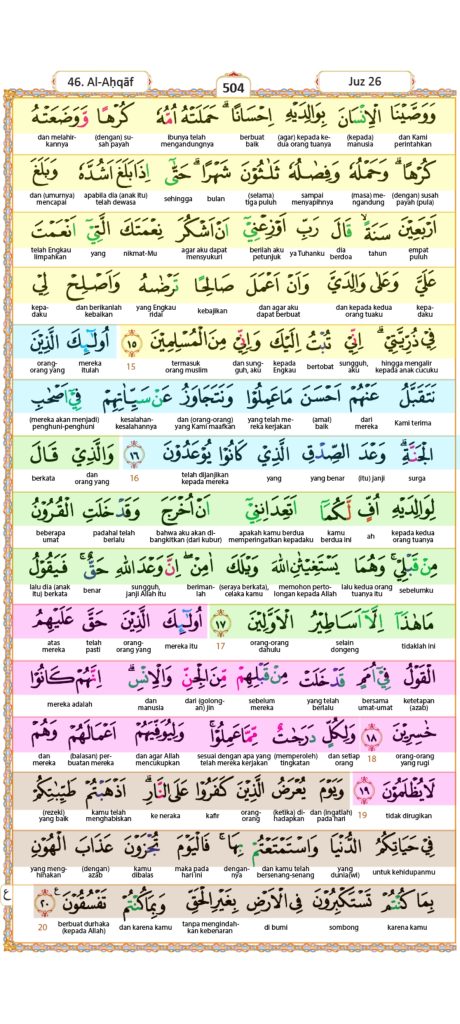 46. Al-Aḥqāf
504
Juz 26
وَوَصَّيْنَا الْاِنْسَانَ بِوَالِدَيْهِ اِحْسَانًا ۗحَمَلَتْهُ اُمُّهٗ كُرْهًا وَّوَضَعَتْهُ
dan Kami perintahkan (kepada) manusia (agar) kepada kedua orang tuanya berbuat baik ibunya telah mengandungnya (dengan) susah payah dan melahirkannya
كُرْهًا ۗوَحَمْلُهٗ وَفِصٰلُهٗ ثَلٰثُوْنَ شَهْرًا ۗحَتّٰىٓ اِذَا بَلَغَ اَشُدَّهٗ وَبَلَغَ
(dengan) susah payah (pula) (masa) mengandung sampai menyapihnya (selama) tiga puluh bulan sehingga apabila dia (anak itu) telah dewasa dan (umurnya) mencapai
اَرْبَعِيْنَ سَنَةًۙ قَالَ رَبِّ اَوْزِعْنِيْٓ اَنْ اَشْكُرَ نِعْمَتَكَ الَّتِيْٓ اَنْعَمْتَ
empat puluh tahun dia berdoa ya Tuhanku berilah aku petunjuk agar aku dapat mensyukuri nikmat-Mu yang telah Engkau limpahkan
عَلَيَّ وَعَلٰى وَالِدَيَّ وَاَنْ اَعْمَلَ صَالِحًا تَرْضٰىهُ وَاَصْلِحْ لِيْ
kepadaku dan kepada kedua orang tuaku dan agar aku dapat berbuat kebajikan yang Engkau ridai dan berikanlah kebaikan kepadaku
فِيْ ذُرِّيَّتِيْۗ اِنِّيْ تُبْتُ اِلَيْكَ وَاِنِّيْ مِنَ الْمُسْلِمِيْنَ ١٥ اُولٰۤىِٕكَ الَّذِيْنَ
hingga mengalir kepada anak cucuku sungguh, aku bertobat kepada Engkau dan sungguh, aku termasuk orang muslim 15 mereka itulah orang-orang yang
نَتَقَبَّلُ عَنْهُمْ اَحْسَنَ مَا عَمِلُوْا وَنَتَجَاوَزُ عَنْ سَيِّاٰتِهِمْ فِيْٓ اَصْحٰبِ
Kami terima dari mereka (amal) baik yang telah mereka kerjakan dan (orang-orang) yang Kami maafkan kesalahan-kesalahannya (mereka akan menjadi) penghuni-penghuni
الْجَنَّةِۗ وَعْدَ الصِّدْقِ الَّذِيْ كَانُوْا يُوْعَدُوْنَ ١٦ وَالَّذِيْ قَالَ
surga (itu) janji yang benar yang telah dijanjikan kepada mereka 16 dan orang yang berkata
لِوَالِدَيْهِ اُفٍّ لَّكُمَآ اَتَعِدَانِنِيْٓ اَنْ اُخْرَجَ وَقَدْ خَلَتِ الْقُرُوْنُ
kepada kedua orang tuanya ah kamu berdua ini apakah kamu berdua memperingatkan kepadaku bahwa aku akan dibangkitkan (dari kubur) padahal telah berlalu beberapa umat
مِنْ قَبْلِيْۚ وَهُمَا يَسْتَغِيْثٰنِ اللّٰهَ وَيْلَكَ اٰمِنْ ۖاِنَّ وَعْدَ اللّٰهِ حَقٌّۚ فَيَقُوْلُ
sebelumku lalu kedua orang tuanya itu memohon pertolongan kepada Allah (seraya berkata), celaka kamu berimanlah sungguh, janji Allah itu benar lalu dia (anak itu) berkata
مَا هٰذَآ اِلَّآ اَسَاطِيْرُ الْاَوَّلِيْنَ ١٧ اُولٰۤىِٕكَ الَّذِيْنَ حَقَّ عَلَيْهِمُ
tidaklah ini selain dongeng orang-orang dahulu 17 mereka itu orang-orang yang telah pasti atas mereka
الْقَوْلُ فِيْٓ اُمَمٍ قَدْ خَلَتْ مِنْ قَبْلِهِمْ مِّنَ الْجِنِّ وَالْاِنْسِۗ اِنَّهُمْ كَانُوْا
ketetapan (azab) bersama umat-umat yang telah berlalu sebelum mereka dari (golongan) jin dan manusia mereka adalah
خٰسِرِيْنَ ١٨ وَلِكُلٍّ دَرَجٰتٌ مِّمَّا عَمِلُوْاۚ وَلِيُوَفِّيَهُمْ اَعْمَالَهُمْ وَهُمْ
orang-orang yang rugi 18 dan setiap orang (memperoleh) tingkatan sesuai dengan apa yang telah mereka kerjakan dan agar Allah mencukupkan (balasan) perbuatan mereka dan mereka
لَا يُظْلَمُوْنَ ١٩ وَيَوْمَ يُعْرَضُ الَّذِيْنَ كَفَرُوْا عَلَى النَّارِۗ اَذْهَبْتُمْ طَيِّبٰتِكُمْ
tidak dirugikan 19 dan (ingatlah) pada hari (ketika) dihadapkan orang-orang kafir ke neraka kamu telah menghabiskan (rezeki) yang baik
فِيْ حَيَاتِكُمُ الدُّنْيَا وَاسْتَمْتَعْتُمْ بِهَاۚ فَالْيَوْمَ تُجْزَوْنَ عَذَابَ الْهُوْنِ
untuk kehidupanmu yang dunia(wi) dan kamu telah bersenang-senang dengannya maka pada hari ini kamu dibalas (dengan) azab yang menghinakan
بِمَا كُنْتُمْ تَسْتَكْبِرُوْنَ فِى الْاَرْضِ بِغَيْرِ الْحَقِّ وَبِمَا كُنْتُمْ تَفْسُقُوْنَ ࣖ ٢٠
karena kamu sombong di bumi tanpa mengindahkan kebenaran dan karena kamu berbuat durhaka (kepada Allah) 20
ع